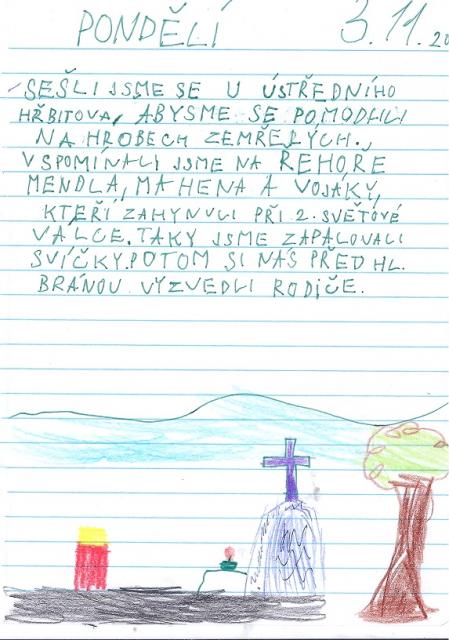 PONDĚLÍ 3.11.20
SEŠLI JSME SE U ÚSTŘEDNÍHO
HŘBITOVA, ABYSME SE POMODLILI
NA HROBECH ZEMŘELÝCH.
VSPOMÍNALI JSME NA ŘEHOŘE
MENDLA, MAHENA A VOJÁKY,
KTEŘÍ ZAHYNULI PŘI 2. SVĚTOVÉ
VÁLCE. TAKY JSME ZAPALOVALI
SVÍČKY. POTOM SI NÁS PŘED HL.
BRÁNOU VYZVEDLI RODIČE.